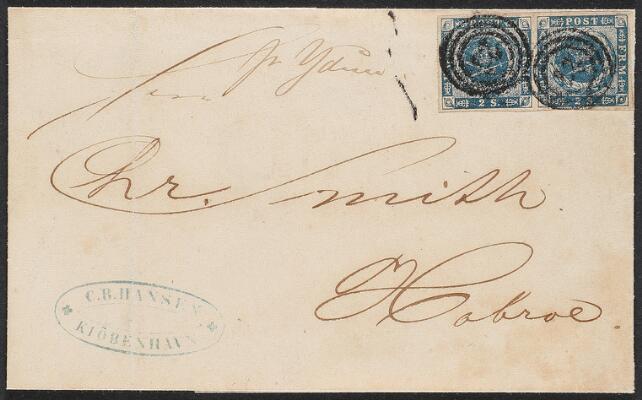 pr Ydun
POST
FRM.
2 S.
2 S.
Chr. Smith
Hobroe
C.B. HANSEN.
KIÖBENHAVN